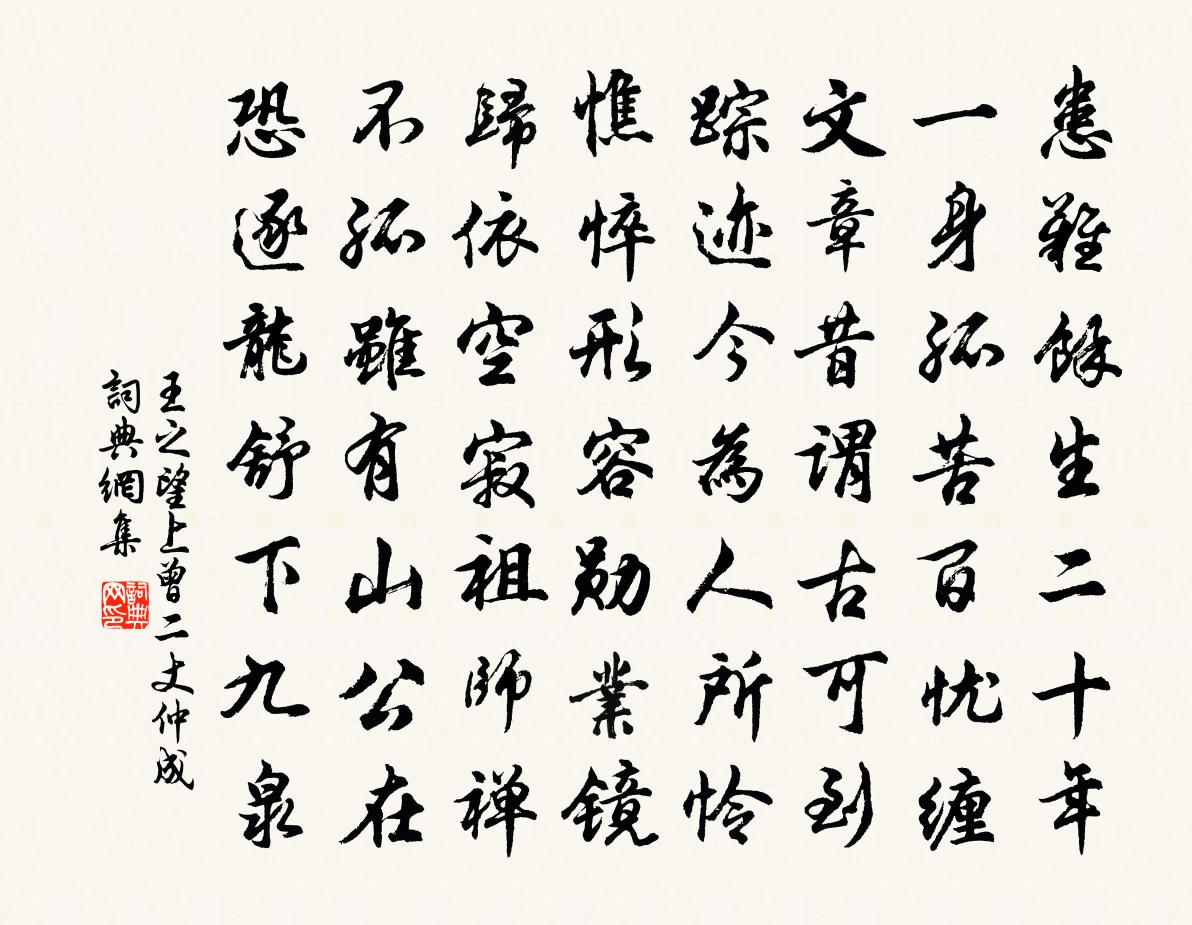 患難餘生二十年
一身孤苦百忧缠
文章昔谓古可到
踪迹今為人所怜
憔悴形容勋業镜
歸依空寂祖师禅
不孤雖有山公在
恐逐龍舒下九泉
王之望上曾二丈仲成
詞典網集
詞典网印